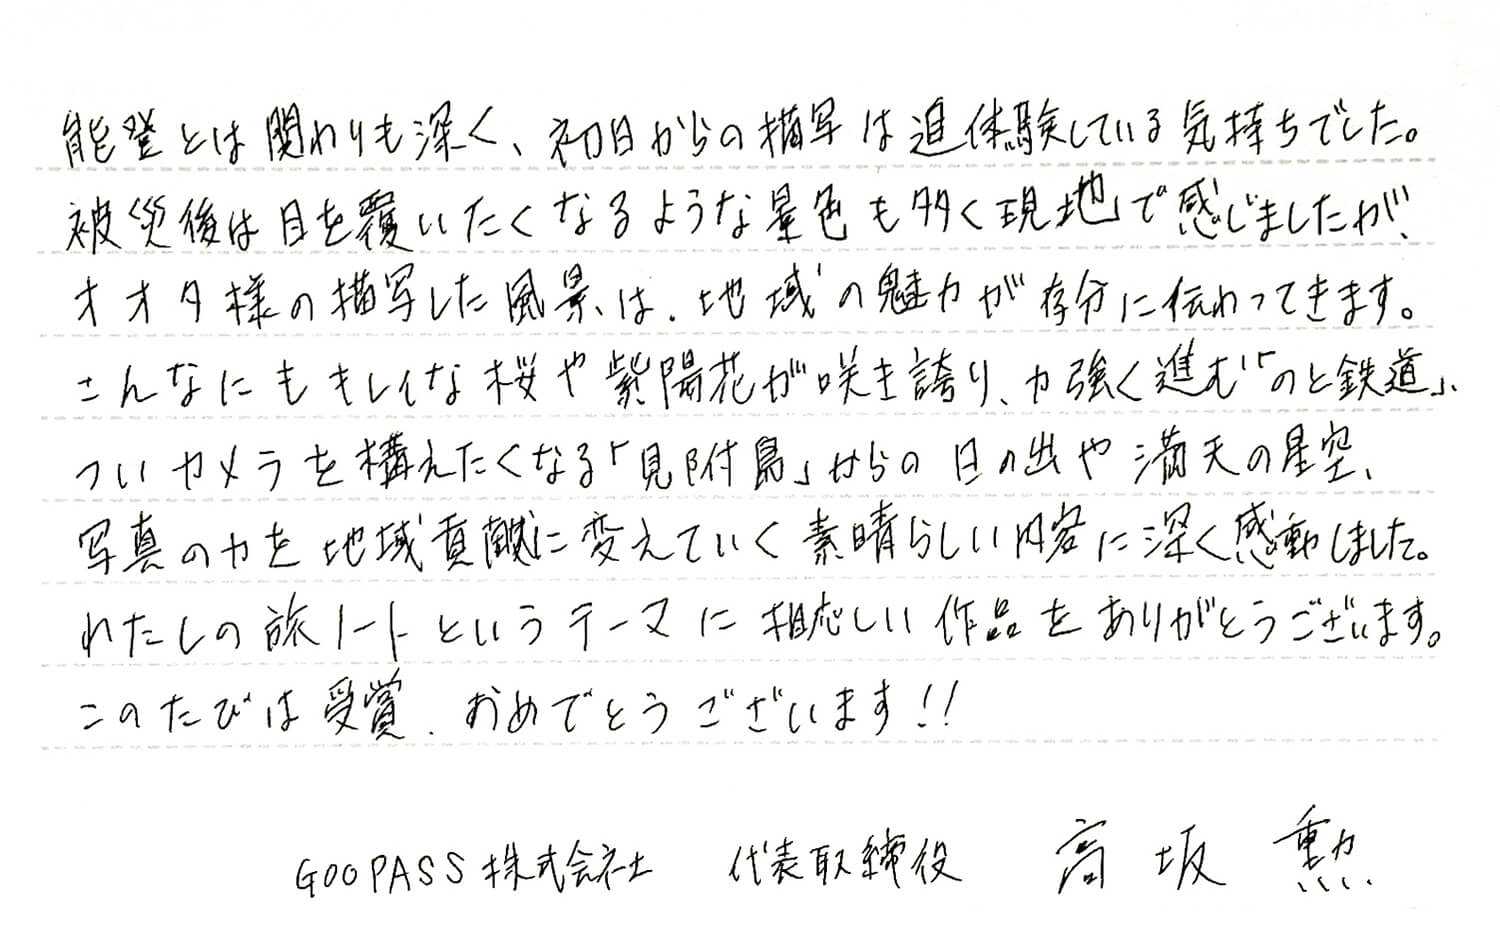 能登とは関わりも深く、初日からの描写は追体験している気持ちでした。
被災後は目を覆いたくなるような景色も多く現地で感じましたが、
オオタ様の描写した風景は、地域の魅力が存分に伝わってきます。
こんなにもキレイな桜や紫陽花が咲き誇り、力強く進む「のと鉄道」、
ついカメラを構えたくなる「見附島」からの日の出や満天の星空、
写真の力を地域貢献に変えていく素晴らしい内容に深く感動しました。
わたしの旅ノートというテーマに相応しい作品をありがとうございます。
このたびは受賞、おめでとうございます!!
GOOPASS株式会社 代表取締役 高坂 勲